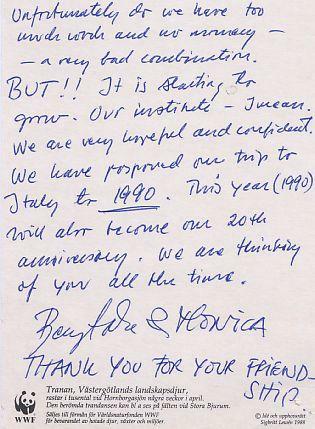 Unfortunately do we have too
much work and no money -
- a very bad combination.
BUT!! It is starting to
grow. Our institute - I mean.
We are very hopeful and confident.
We have posponed our trip to
Italy to 1990. This year (1990)
will also become our 20th
anniversary. We are thinking
of you all the time.
& MONICA
THANK YOU FOR YOUR FRIEND-
SHIP
Tranan, Västergötlands landskapsdjur,
rastar i tusental vid Hornborgasjön några veckor i april.
Den berömda trandansen kan bl a ses på fälten vid Stora Bjurum.
Säljes till förmån för Världsnaturfonden WWF
för bevarandet av hotade djur, växter och miljöer.
WWF
© Idé och upphovsrätt
1988